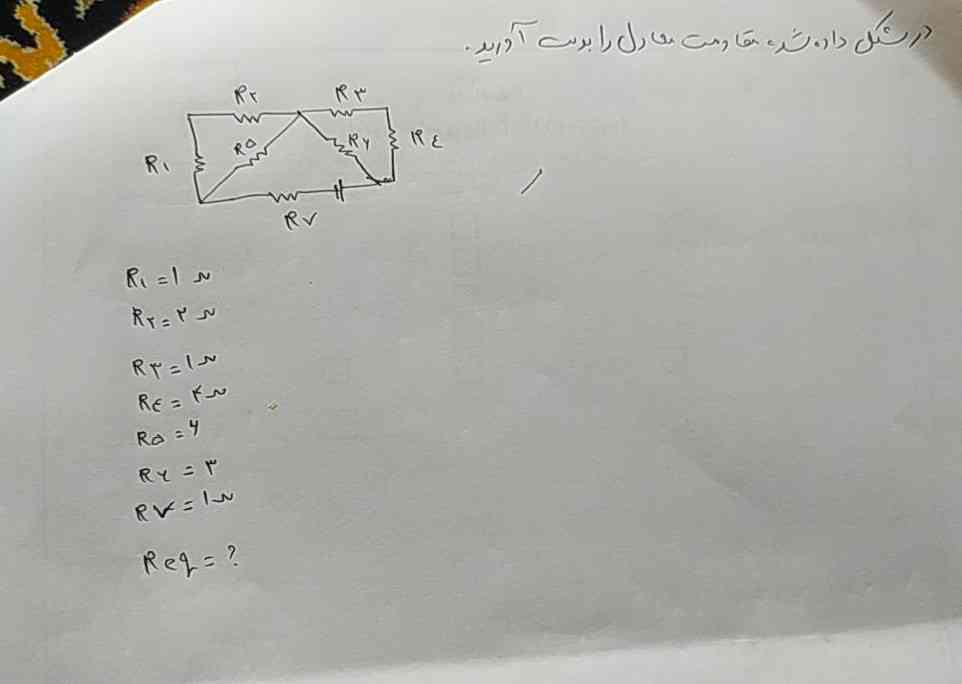 در شکل داده شده مقاومت معادل را بدست آورید.
R۲ R۳
R۱ R۵ R۶ R٤
R۷
R۱ = ۱ Ω
R۲ = ۲ Ω
R۳ = ۱ Ω
R٤ = ۴ Ω
R۵ = ۶
R۶ = ۳
R۷ = ۱ Ω
Req = ?